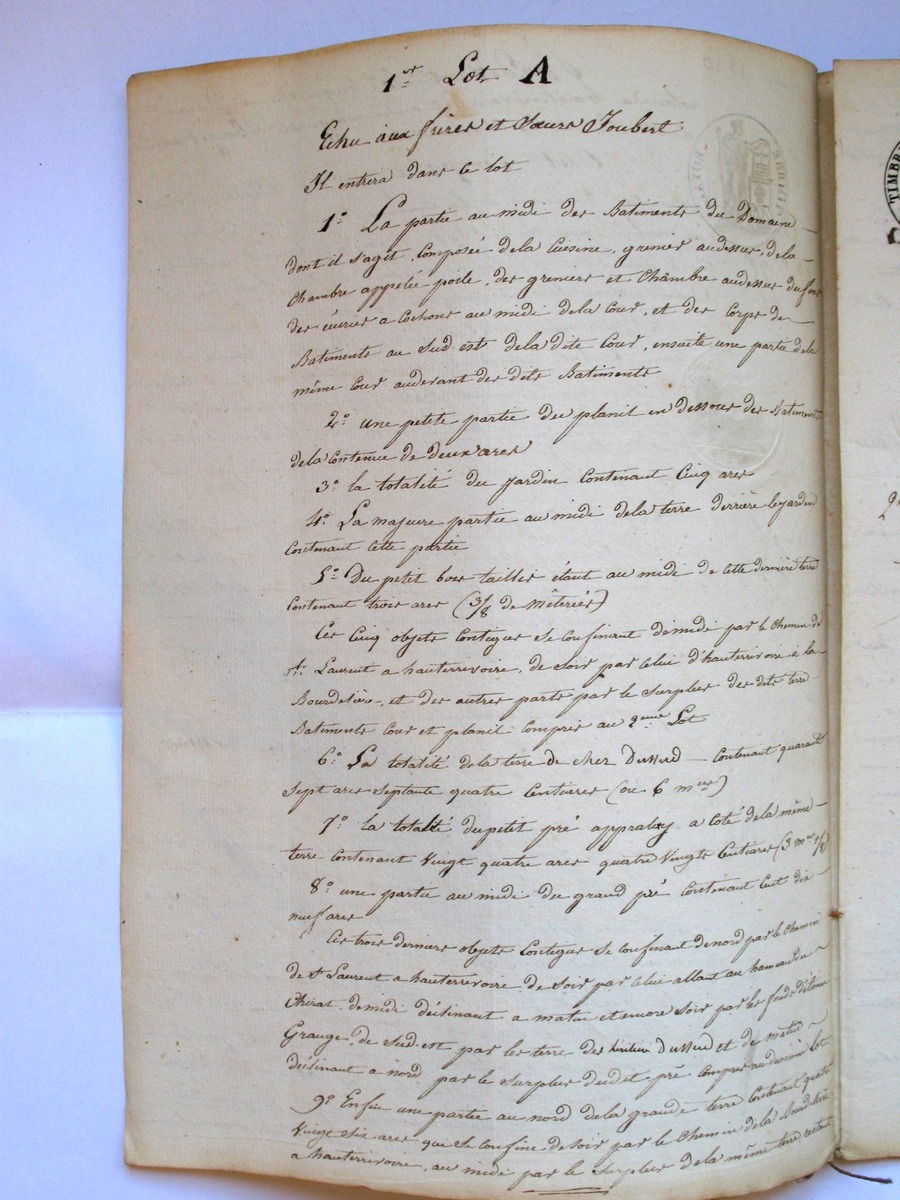 1er Lot A
Echu aux frères et Sœurs Joubert
Il entrera dans ce lot
1° La partie au midi des Batiments du Domaine
dont il s'agit, composée de la Cuisine, grenier audessus, de la
Chambre appelée poile, des greniers et Chambre audessus du four
des écuries a Cochons au midi de la Cour, et des Corps de
Batiments au Sud est de la dite Cour, ensuite une partie de la
même Cour audevant des dits Batiments
2° une petite partie du planil en dessous des Batiments
de la Contenue de Deux ares
3° la totalité du jardin Contenant Cinq ares
4° La majeure partie au midi de la terre derrière le jardin
Contenant cette partie
5° Du petit bois taillis étant au midi de cette dernière terre
Contenant trois ares (3/8 de Mêterées)
Ces Cinq objets Contigus se Confinent de midi par le Chemin de
St Laurent a hauterivoire, de Soir par Celui d'hauterrivoire a la
Bourdelière, et des autres parts par le Surplus des dits terre
Batiments Cour et planil Compris au 2eme Lot
6° La totalité de la terre de Chez Dussud Contenant quarante
Sept ares Septante quatre Centiares (ou 6 mées)
7° la totalité du petit pré appralay a Coté de la même
terre Contenant Vingt quatre ares quatre Vingts Centiares (3 mées 1/8)
8° une partie au midi du grand pré Contenant Cent dix
neuf ares
Ces trois derniers objets Contigus Se Confinent de nord par le Chemin
de St Laurent a hauterrivoire de Soir par Celui allant au hameau du
Chirat de midi déclinant a matin et encore Soir par les fonds d'
Grange, de Sud-est par les terre des héritiers Dussud et de matin
déclinant a nord par le Surplus dudit pré Compris au lot
9° Enfin une partie au nord de la grande terre Contenant quatre
Vingt Six ares qui Se Confine de Soir par le Chemin de la Bourdelière
a hauterrivoire, au midi par le Surplus de la même terre
TIMBR